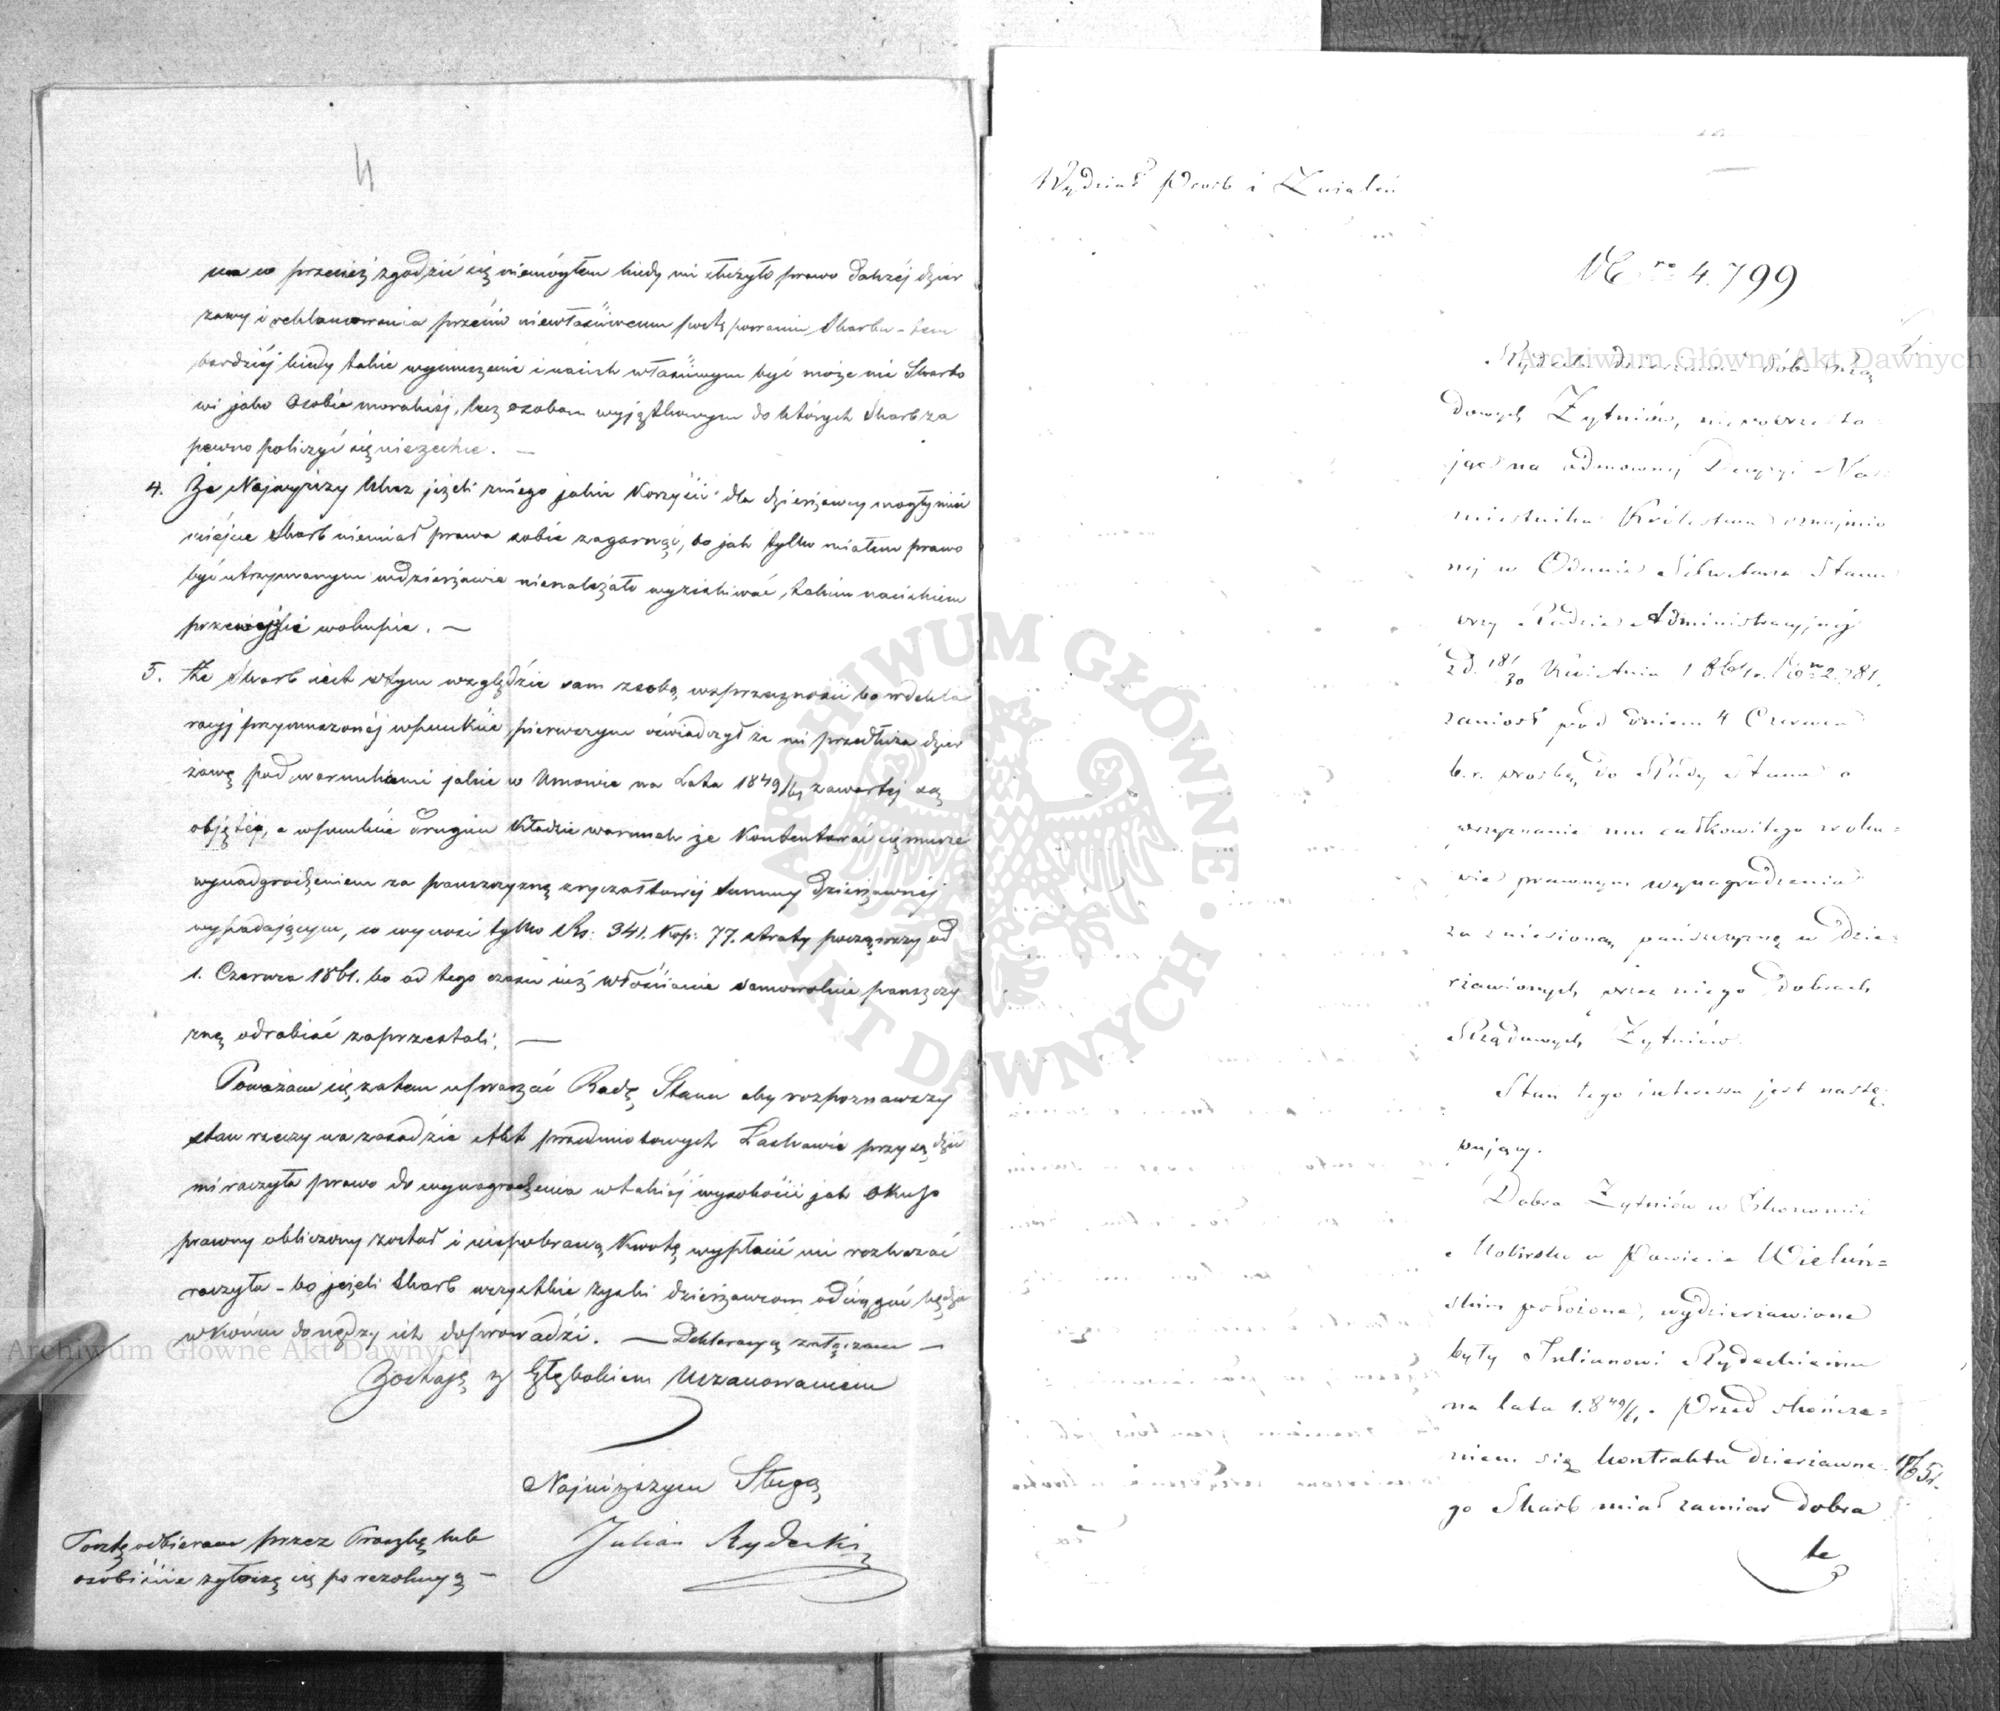 4
przecież zgodzić się niemógłem kiedy mi służyło prawo dalszéj dzier
żawy i reklamowania przeciw niewłaściwemu postępowaniu Skarbu - tem
bardziéj kiedy takie wymuszenie i ucisk właściwym być może nie Skarbo
wi jako Osobie moralnéj, lecz osobom wyjątkowym do których Skarb za
pewno policzyć się niezechce. —
4. Że Najwyższy Ukaz jeżeli z niego jakie Korzyści dla dzierżawcy mogły mieć
miéjsce Skarb niemiał prawa sobie zagarnąć, bo jak tylko miałem prawo
być utrzymanym w dzierżawie nienależało wyzyskiwać, takim naciskiem
wokupie. —
5. Że Skarb jest w tym względzie sam z sobą w sprzeczności bo w dekla
racyj przymuszonéj w punkcie pierwszym oświadczył że mi przedłuża dzier
żawę pod warunkami jakie w Umowie na Lata 1849/61 zawartéj są
objęte, a w punkcie drugim Kładzie warunek że Kontentować się muszę
wynadgrodzeniem za pańszczyznę z ryczałtowéj Summy dzierżawnéj
wypadającym, co wynosi tylko Rs: 341. Kop: 77. straty począwszy od
1. Czerwca 1861. bo od tego czasu już włościanie samowolnie pańszczy
znę odrabiać zaprzestali. —
Poważam się zatem upraszać Radę Stanu aby rozpoznawszy
stan rzeczy na zasadzie Akt przedmiotowych Łaskawie przysądzić
mi raczyła prawo do wynagrodzenia w takiéj wysokości jak Okup
prawny obliczony został i niepobraną Kwotę wypłacić mi rozkazać
raczyła - bo jeżeli Skarb wszystkie zyski dzierżawcom odciągać będzie
w Końcu do nędzy ich doprowadzi. — Deklaracyą załączam —
Zostaję z Głębokiem Uszanowaniem
Najniższym Sługą
Julian Rydecki
Pocztę odbieram przez Praszkę lub
osobiście zgłoszę się po rezolucyą —
Wydział Prośb i Zażaleń
Nro 4.799
Rydecki dzierżawca dóbr Rzą
dowych Żytniów, niepoprzesta
jąc na odmownéj Decyzyi Na-
miestnika Królestwa oznajmio
néj w Odezwie Sekretarza Stanu
przy Radzie Administracyjnéj
z d. 18/30 Kwietnia 1864 r. No 2.781.
zaniósł pod dniem 4 Czerwca
b.r. prośbę do Rady Stanu o
przyznanie mu całkowitego w oku-
pie prawnym wynagrodzenia
za zniesioną pańszczyznę w dzie-
rżawionych przez niego Dobrach
Rządowych Żytniów.
Stan tego interessu jest nastę-
pujący.
Dobra Żytniów w Ekonomii
w Powiecie Wieluń=
skim położone, wydzierżawione
były Julianowi Rydeckiemu
na lata 1.849/61. Przed skończe=
niem się kontraktu dzierżawne-
go Skarb miał zamiar dobra
te
1865r.
Archiwum Główne Akt Dawnych
Archiwum Główne Akt Dawnych
ARCHIWUM GŁÓWNE · AKT DAWNYCH ·